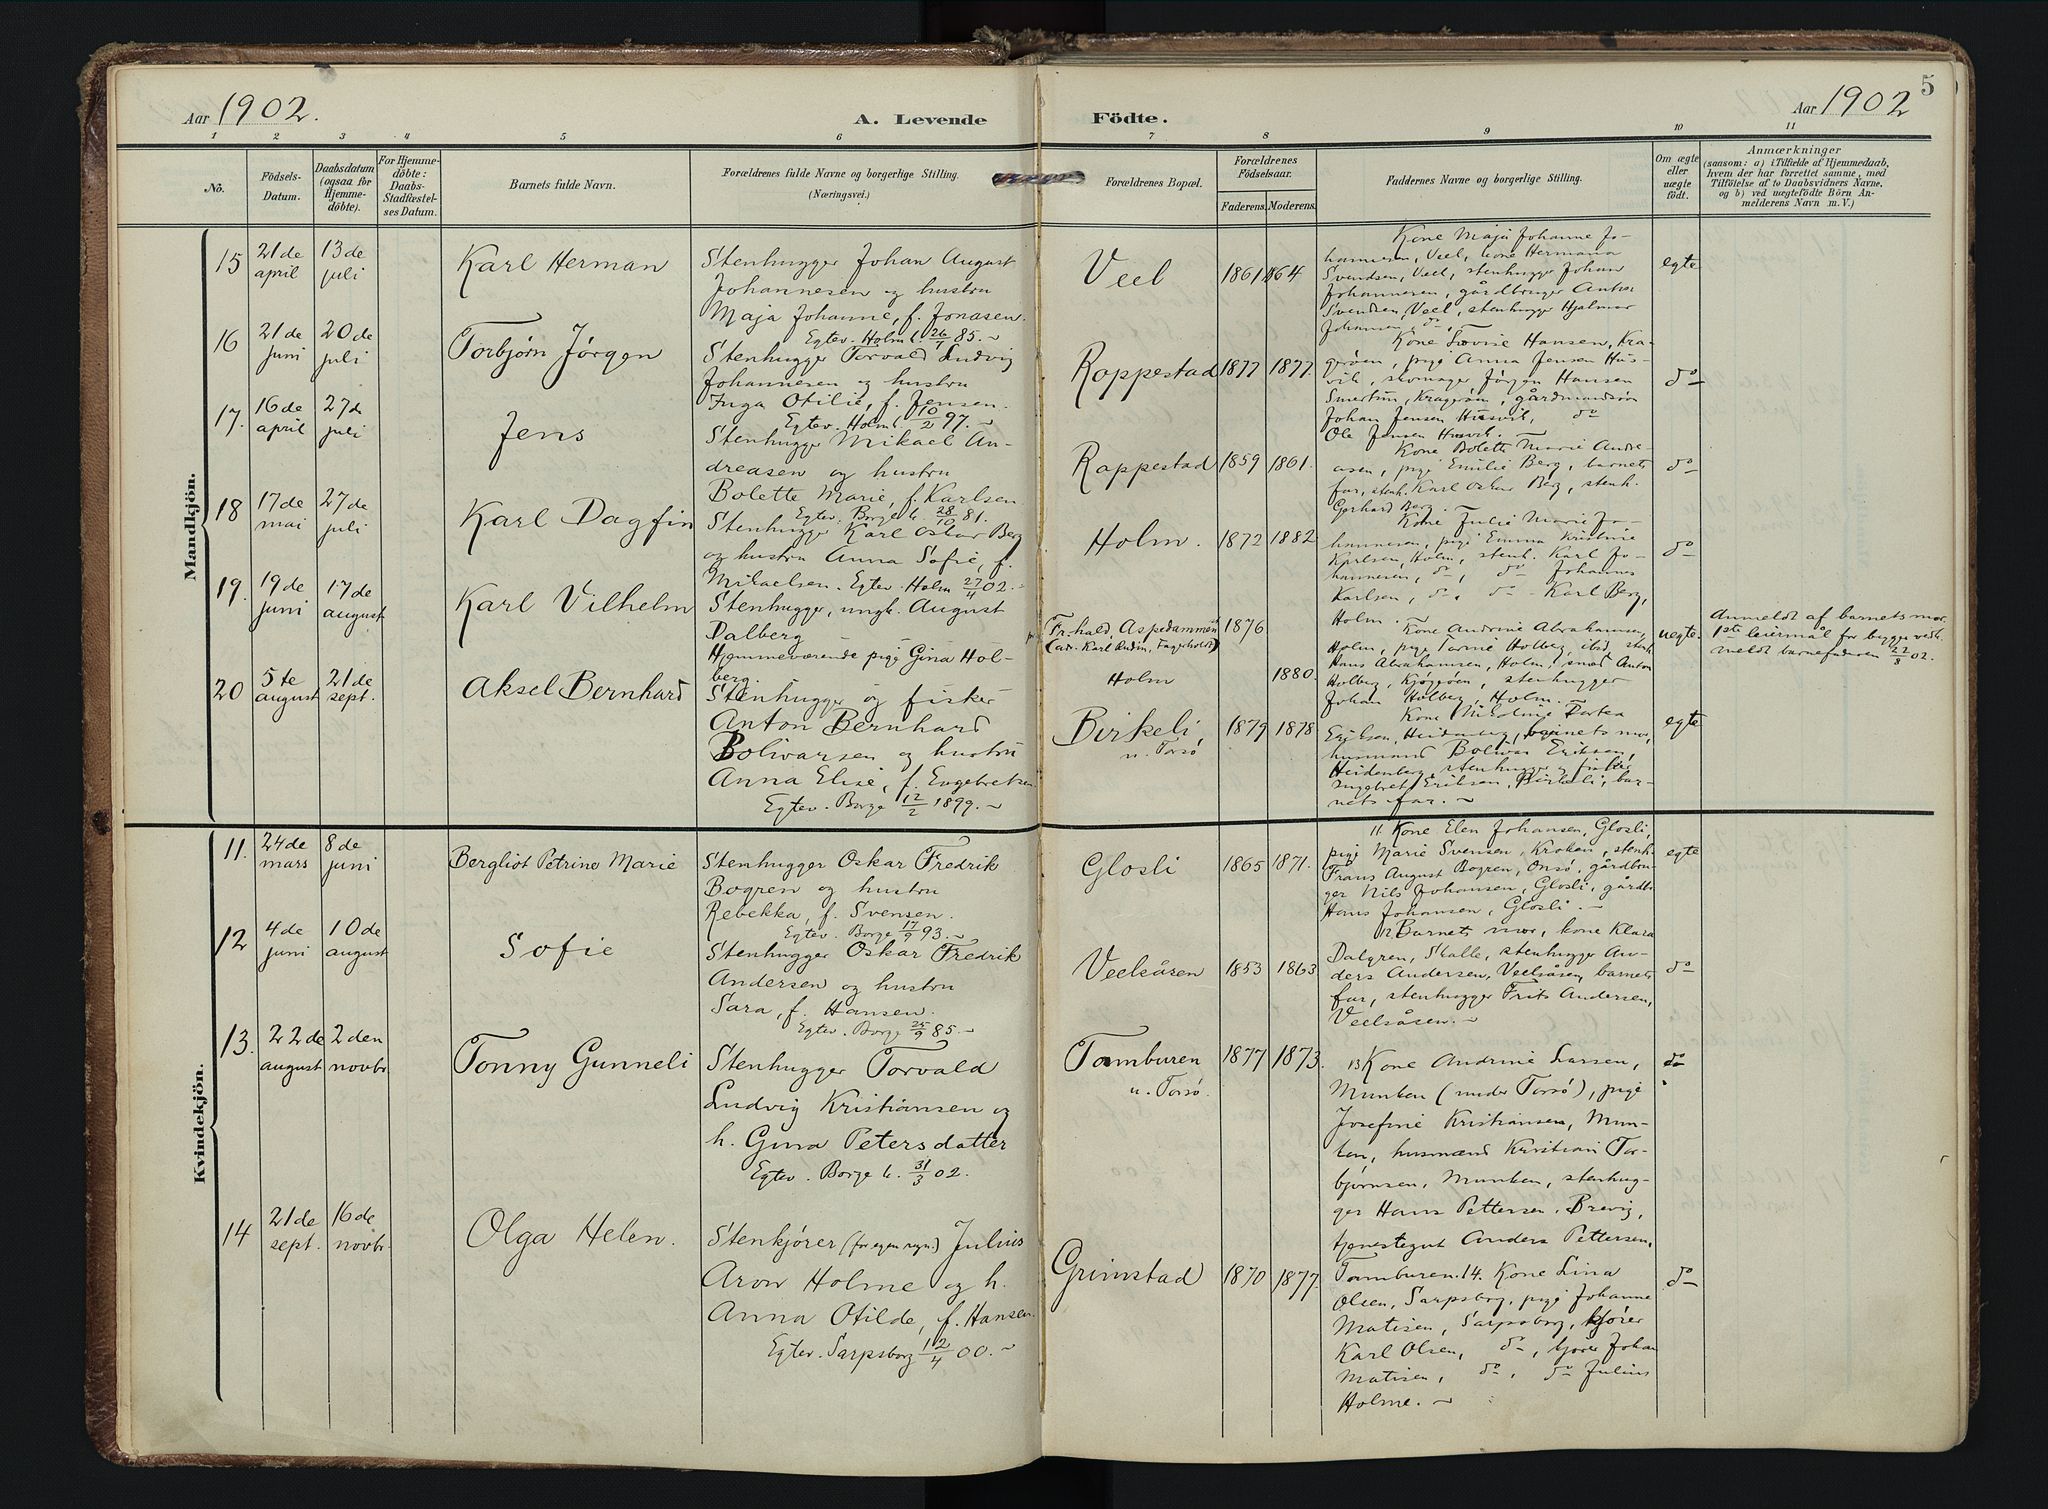 Aar 1902.
A. Levende
1 2 3 4 5 6
No.
Födsels-
Datum.
Daabsdatum
(ogsaa for
Hjemme-
döbte).
For Hjemme-
döbte:
Daabs-
Stadfæstel-
ses Datum.
Barnets fulde Navn.
Forældrenes fulde Navne og borgerlige Stilling.
(Næringsvei.)
Mandkjön.
15
21de
april
13de
juli
Karl Herman
Stenhugger Johan August
Johannesen og hustru
Maja Johanne, f. Jonasen.
Egtev. Holm k. 26/7 85.
16
21de
juni
20de
juli
Torbjørn Jørgen
Stenhugger Torvald Ludvig
Johannesen og hustru
Inga Otilie, f. Jensen.
Egtev. Holm k. 10/2 97.
17.
16de
april
27de
juli
Jens
Stenhugger Mikael An-
dreasen og hustru
Bolette Marie f. Karlsen
Egtev. Borge k. 28/10 81.
18
17de
mai
27de
juli
Karl Dagfin
Stenhugger Karl Oskar Berg
og hustru Anna Sofie, f.
Mikaelsen. Egtev. Holm 27/4 02.
19.
19de
juni
17de
august
Karl Vilhelm
Stenhugger, ungk. August
Dalberg
Hjemmeværende pige Gina Hol-
berg.
20
5te
august
21de
sept.
Aksel Bernhard
Stenhugger og fisker
Anton Bernhard
Bolivarsen og hustru
Anna Elise, f. Engebretsen.
Egtev. Borge 12/2 1899.
Kvindekjön.
11.
24de
mars
8de
juni
Bergliot Petrine Marie
Stenhugger Oskar Fredrik
Bogren og hustru
Rebekka, f. Svensen.
Egtev. Borge 17/9 93.
12
4de
juni
10de
august
Sofie
Stenhugger Oskar Fredrik
Andersen og hustru
Sara, f. Hansen.
Egtev. Borge 25/9 85.
13.
22de
august
2den
novbr
Tonny Gunneli
Stenhugger Torvald
Ludvig Kristiansen og
h. Gina Petersdatter
Egtev. Borge k. 31/3 02.
14
21de
sept.
16de
novbr.
Olga Helen.
Stenkjører (for egen regn.) Julius
Aron Holme og h.
Anna Otilde, f. Hansen.
Egtev. Sarpsborg 12/4 00.
5
Födte.
Aar 1902
7 8 9 10 11
Forældrenes Bopæl.
Forældrenes
Födselsaar.
Faderens. Moderens.
Faddernes Navne og borgerlige Stilling.
Om ægte
eller
uægte
født.
Anmærkninger
(saasom: a) i Tilfælde af Hjemmedaab,
hvem der har forrettet samme, med
Tilföielse af to Daabsvidners Navne,
og b) ved uægtefödte Börn An-
melderens Navn m. V.)
Veel
1861 1864
Kone Maja Johanne Jo-
hannesen, Veel, kone Hermana
Svendsen, Veel, stenhugger Johan
Johannesen, gårdbruger Anton
Svendsen, Veel, stenhugger Hjalmar
Johansen, do.
egte
Roppestad
1877 1877.
Kone Lovise Hansen, Kra-
gerøen, pige Anna Jensen Hus-
vik, skomager Jørgen Hansen
Kragerøen, gårdmandssøn
Johan Jensen Husvik, do
Ole Jensen Husvik.
do
Roppestad
1859 1861.
Kone Bolette Marie Andre-
asen, pige Emilie Berg, barnets
far, stenh. Karl Oskar Berg, stenh.
Gerhard Berg.
do
Holm.
1872 1882.
Kone Julie Marie Jo-
hannesen, pige Emma Kristine
Karlsen, Holm, stenh. Karl Jo-
hannesen, do, do Johannes
Karlsen, do, do Karl Berg,
Holm.
do
Fr.hald, Aspedammen
(adr. Karl Rudin, Fagerholdt)
1876
Holm
1880.
Kone Andrine Abrahamsen,
Holm, pige Tomine Holberg, ibid, stenh.
Hans Abrahamsen, Holm, smed Anton
Holberg, Kjøgøen, stenhugger
Johan Holberg, Holm.
uegte.
Anmeldt af barnets mor
1ste leiermål for begge vedk.
meldt barnefaderen 22/8 02.
Birkeli,
u. Torsø
1879 1878
Kone Nikoline Dortea
Eriksen, Heidenberg, barnets mor,
husmand Bolivar Eriksen,
Heidenberg, stenhugger og fisker
Engebret Eriksen, Birkeli, bar-
nets far.
egte
Glosli
1865 1871.
11 Kone Elen Johansen, Glosli,
pige Marie Svensen, Kroken, stenh.
Frans August Bogren, Onsø, gårdbru-
ger Nils Johansen, Glosli, gårdb.
Hans Johansen, Glosli.
egte
Veelsåsen
1853 1863
12 Barnets mor, kone Klara
Dalgren, Skalle, stenhugger An-
ders Andersen, Veelsåsen, barnets
far, stenhugger Frits Andersen,
Veelsåsen.
do
Tamburen
u. Torsø.
1877 1873.
13 Kone Andrine Larsen,
Munken (under Torsø), pige
Josefine Kristiansen, Mun-
ken, husmand Kristian Tor-
bjørnsen, Munken, stenhug-
ger Hans Pettersen, Brevig,
tjenestegut Anders Pettersen,
Tamburen.
do
Grimstad
1870 1877.
14. Kone Lina
Olsen, Sarpsborg, pige Johanne
Matisen, Sarpsborg, kjører
Karl Olsen, do, kjører Johan
Matisen, do, do Julius
Holme.
do